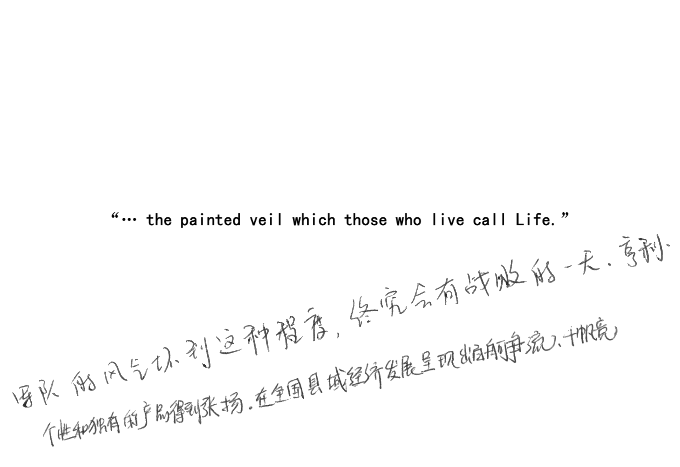 “… the painted veil which those who live call Life.”
军队的风气坏到这种程度，终究会有战败的一天．亨利．
个性和独有的产品得到张扬．在全国县域经济发展呈现出百舸争流、千帆竞